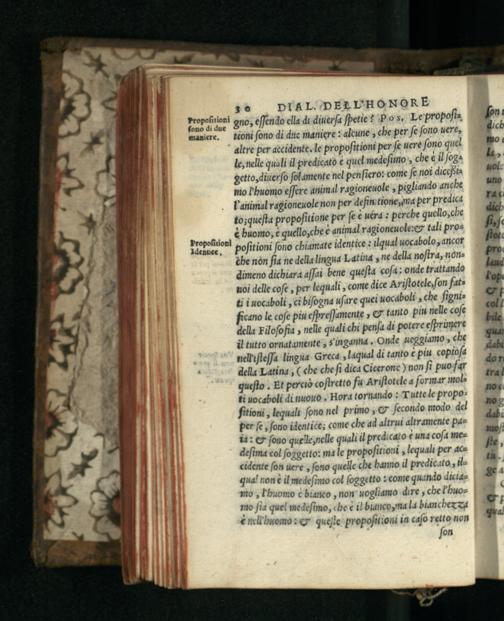 30 DIAL. DELL'HONORE
Propositioni
sono di due
maniere.
gno, essendo ella di diuersa spetie? Pos. Le proposi-
tioni sono di due maniere: alcune, che per se sono uere,
altre per accidente. le propositioni per se uere sono quel
le, nelle quali il predicato è quel medesimo, che è il sog-
getto, diuerso solamente nel pensiero: come se noi dicessi-
mo l'huomo essere animal ragioneuole, pigliando anche
l'animal ragioneuole non per definitione, ma per predica
to; questa propositione per se è uera: perche quello, che
è huomo, è quello, che è animal ragioneuole: & tali pro-
Propositioni
Identice.
positioni sono chiamate identice: ilqual uocabolo, ancor
che non sia ne della lingua Latina, ne della nostra, non-
dimeno dichiara assai bene questa cosa: onde trattando
noi delle cose, per lequali, come dice Aristotele, son fat-
ti i uocaboli, ci bisogna usare quei uocaboli, che signi-
ficano le cose piu espressamente, & tanto piu nelle cose
della Filosofia, nelle quali chi pensa di potere esprimere
il tutto ornatamente, s'inganna. Onde ueggiamo, che
nell'istessa lingua Greca, laqual di tanto è piu copiosa
della Latina, (che che si dica Cicerone) non si puo far
questo. Et perciò costretto fu Aristotele a formar mol-
ti uocaboli di nuouo. Hora tornando: Tutte le propo-
sitioni, lequali sono nel primo, & secondo modo del
per se, sono identice; come che ad altrui altramente pa-
ia: & sono quelle, nelle quali il predicato è una cosa me-
desima col soggetto: ma le propositioni, lequali per ac-
cidente son uere, sono quelle che hanno il predicato, il-
qual non è il medesimo col soggetto: come quando dicia-
mo, l'huomo è bianco, non uogliamo dire, che l'huo-
mo sia quel medesimo, che è il bianco, ma la bianchezza
è nell'huomo: & queste propositioni in caso retto non
son